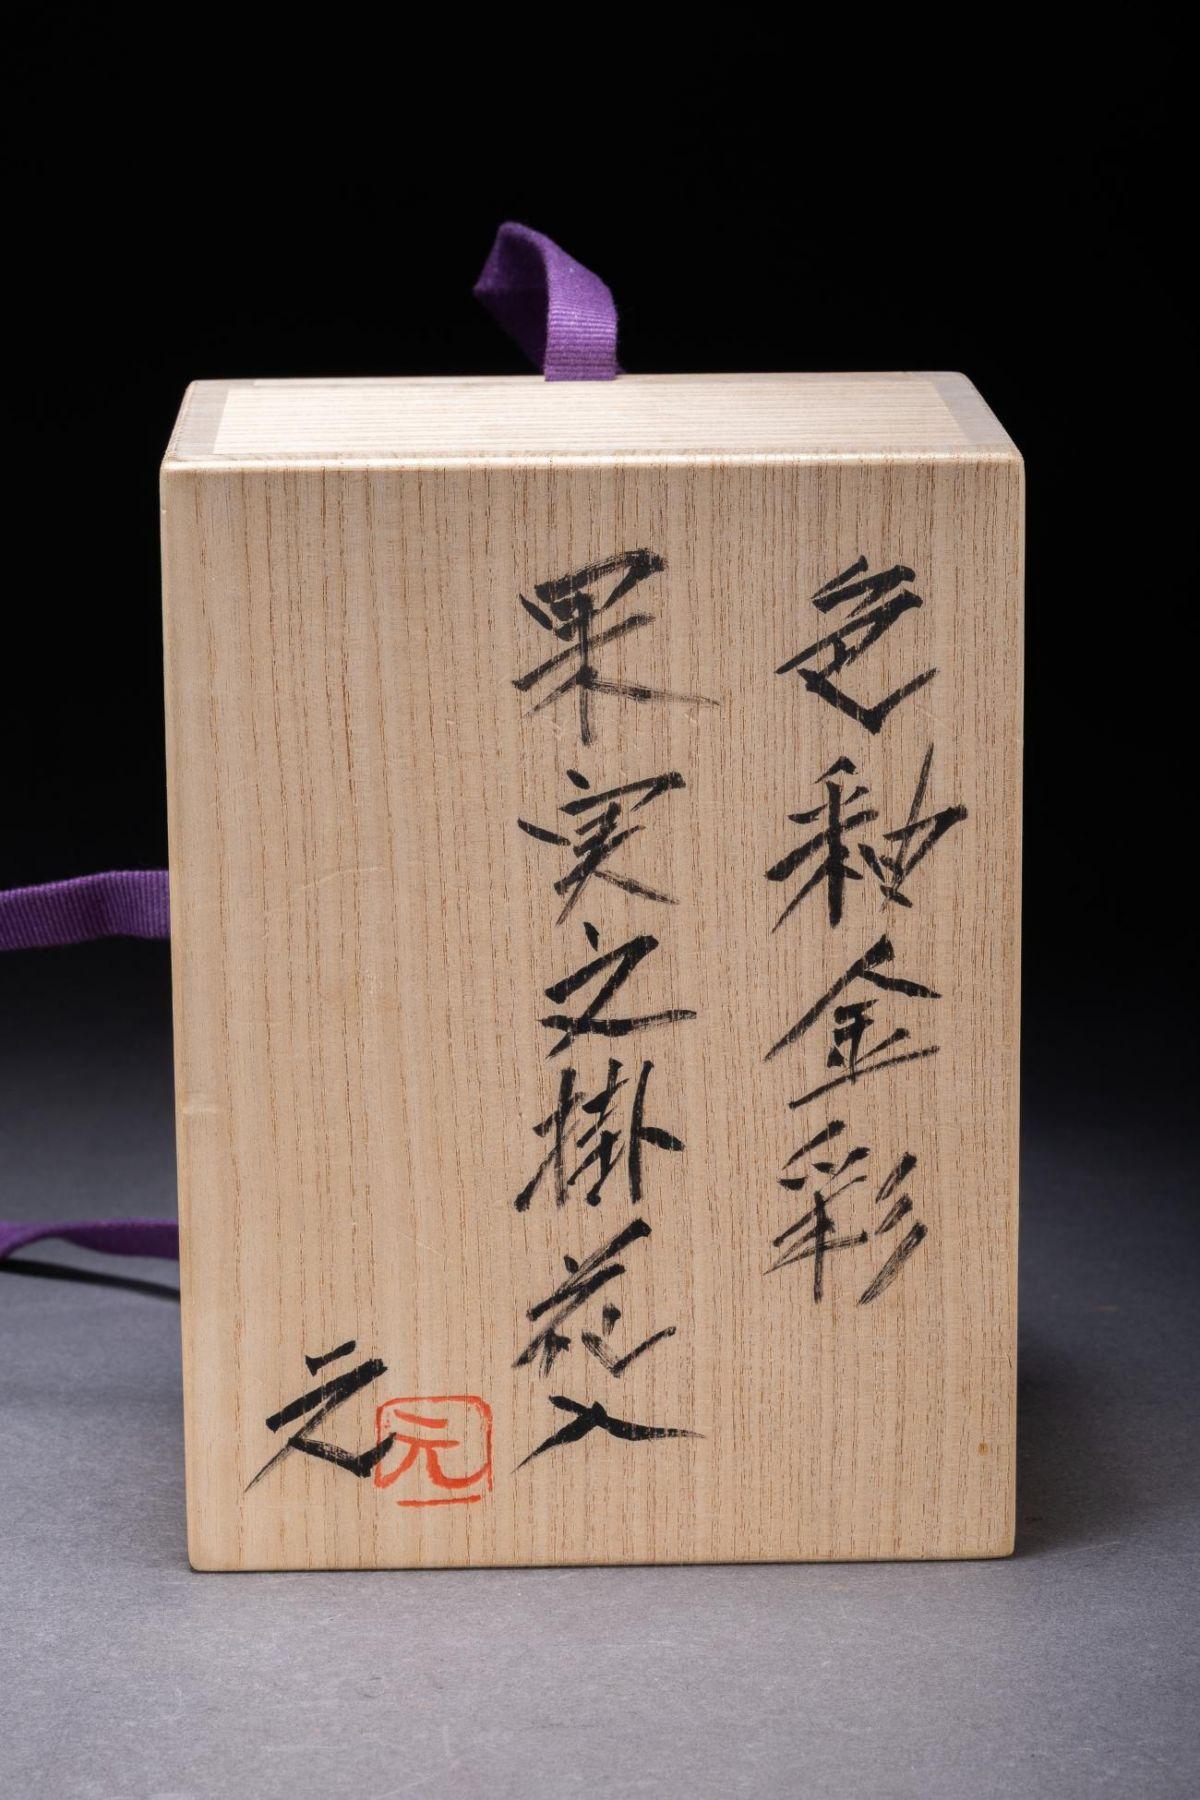 色釉金彩
果実文掛花入
元
元